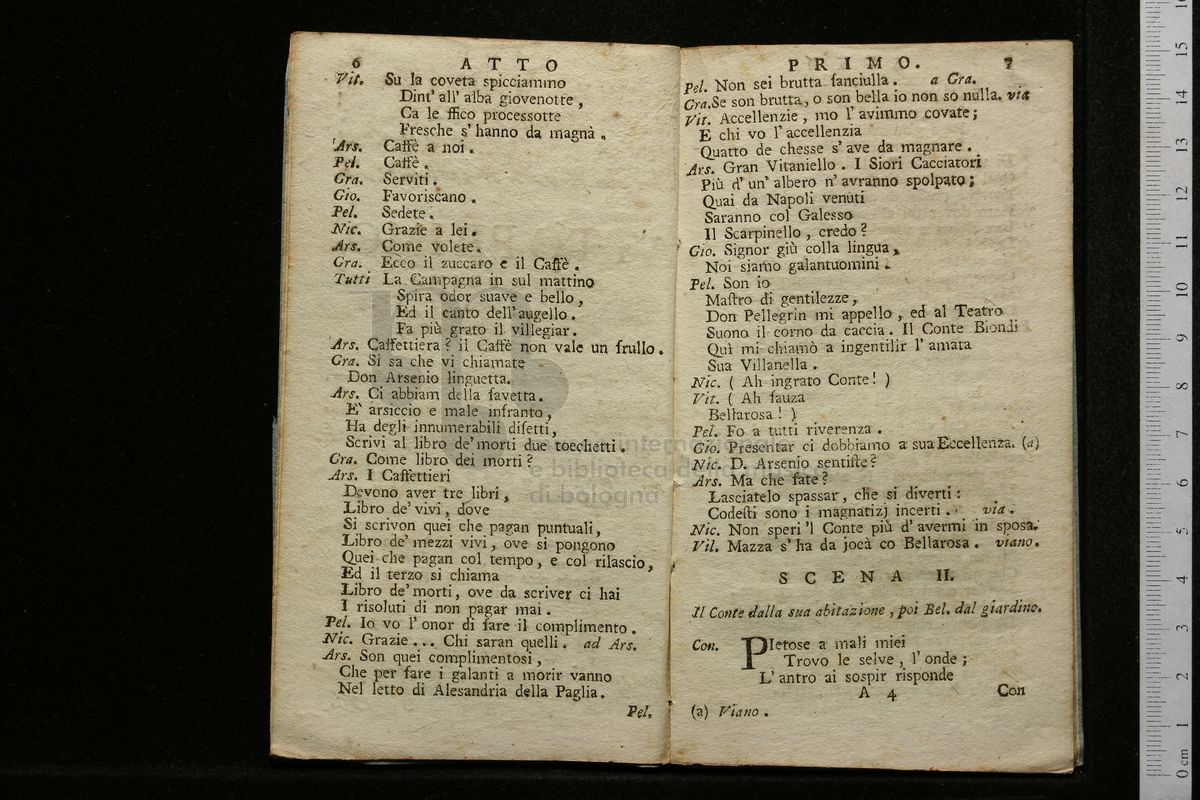 6 ATTO
Vit. Su la coveta spicciammo
Dint' all' alba giovenotte,
Ca le ffico processotte
Fresche s' hanno da magnà.
Ars. Caffè a noi.
Pel. Caffè.
Gra. Serviti.
Gio. Favoriscano.
Pel. Sedete.
Nic. Grazie a lei.
Ars. Come volete.
Gra. Ecco il zuccaro e il Caffè.
Tutti La Campagna in sul mattino
Spira odor suave e bello,
Ed il canto dell'augello.
Fa più grato il villegiar.
Ars. Caffettiera? il Caffè non vale un frullo.
Gra. Si sa che vi chiamate
Don Arsenio linguetta.
Ars. Ci abbiam della favetta.
E' arsiccio e male infranto,
Ha degli innumerabili difetti,
Scrivi al libro de' morti due tocchetti.
Gra. Come libro dei morti?
Ars. I Caffettieri
Devono aver tre libri,
Libro de' vivi, dove
Si scrivon quei che pagan puntuali,
Libro de' mezzi vivi, ove si pongono
Quei che pagan col tempo, e col rilascio,
Ed il terzo si chiama
Libro de' morti, ove da scriver ci hai
I risoluti di non pagar mai.
Pel. Io vo l' onor di fare il complimento.
Nic. Grazie... Chi saran quelli. ad Ars.
Ars. Son quei complimentosi,
Che per fare i galanti a morir vanno
Nel letto di Alesandria della Paglia.
Pel.
PRIMO. 7
Pel. Non sei brutta fanciulla. a Gra.
Gra. Se son brutta, o son bella io non sò nulla. via
Vit. Accellenzie, mo l' avimmo covate;
E chi vo l' accellenzia
Quatto de chesse s' ave da magnare.
Ars. Gran Vitaniello. I Siori Cacciatori
Più d' un' albero n' avranno spolpato;
Quai da Napoli venuti
Saranno col Galesso
Il Scarpinello, credo?
Gio. Signor giù colla lingua,
Noi siamo galantuomini.
Pel. Son io
Mastro di gentilezze,
Don Pellegrin mi appello, ed al Teatro
Suono il corno da caccia. Il Conte Biondi
Quì mi chiamò a ingentilir l' amata
Sua Villanella.
Nic. ( Ah ingrato Conte! )
Vit. ( Ah fauza
Bellarosa! )
Pel. Fo a tutti riverenza.
Gio. Presentar ci dobbiamo a sua Eccellenza. (a)
Nic. D. Arsenio sentiste?
Ars. Ma che fate?
Lasciatelo spassar, che si diverti:
Codesti sono i magnatizj incerti. via.
Nic. Non speri 'l Conte più d' avermi in sposa.
Vil. Mazza s' ha da jocà co Bellarosa. viano.
SCENA II.
Il Conte dalla sua abitazione, poi Bel. dal giardino.
Con. PIetose a mali miei
Trovo le selve, l' onde;
L' antro ai sospir risponde
A 4 Con
(a) Viano.